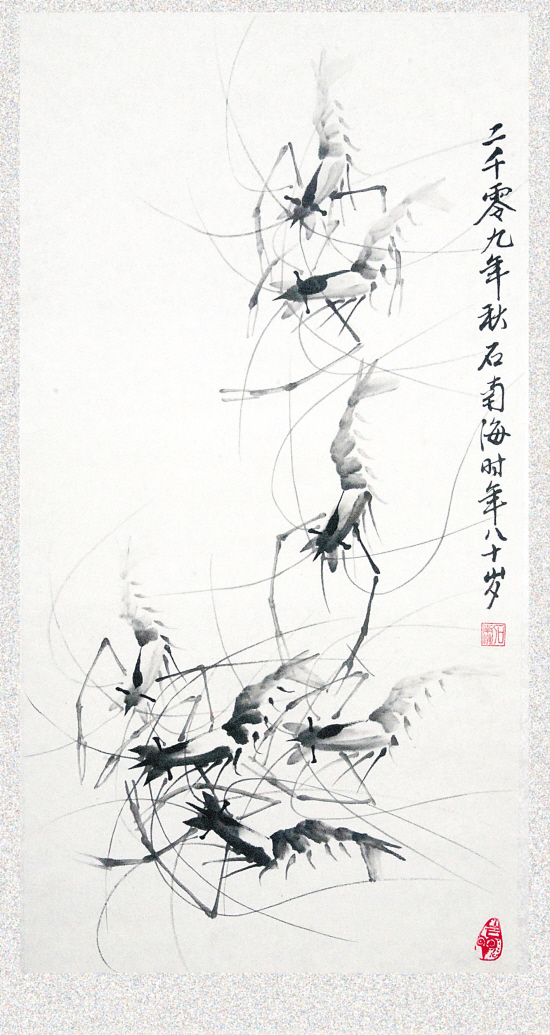 二千零九年秋石南海时年八十岁